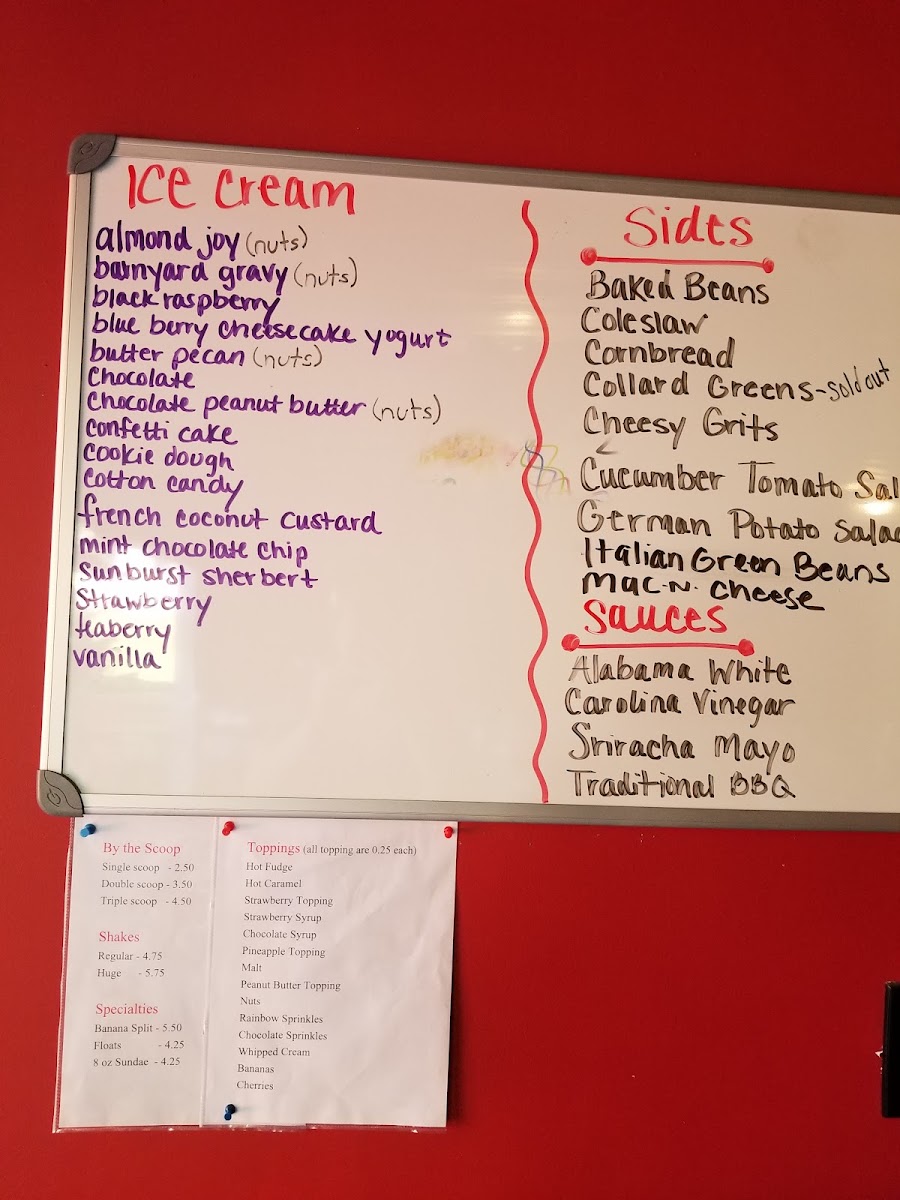 Ice Cream
almond joy (nuts)
barnyard gravy (nuts)
black raspberry
blue berry cheesecake yogurt
butter pecan (nuts)
Chocolate
Chocolate peanut butter (nuts)
confetti cake
cookie dough
cotton candy
french coconut custard
mint chocolate chip
sunburst sherbert
strawberry
teaberry
vanilla
Sides
Baked Beans
Coleslaw
Cornbread
Collard Greens - sold out
Cheesy Grits
Cucumber Tomato Sal
German Potato Salad
Italian Green Beans
Mac-N-Cheese
Sauces
Alabama White
Carolina Vinegar
Sriracha Mayo
Traditional BBQ
By the Scoop
Single scoop - 2.50
Double scoop - 3.50
Triple scoop - 4.50
Shakes
Regular - 4.75
Huge - 5.75
Specialties
Banana Split - 5.50
Floats - 4.25
8 oz Sundae - 4.25
Toppings (all topping are 0.25 each)
Hot Fudge
Hot Caramel
Strawberry Topping
Strawberry Syrup
Chocolate Syrup
Pineapple Topping
Malt
Peanut Butter Topping
Nuts
Rainbow Sprinkles
Chocolate Sprinkles
Whipped Cream
Bananas
Cherries